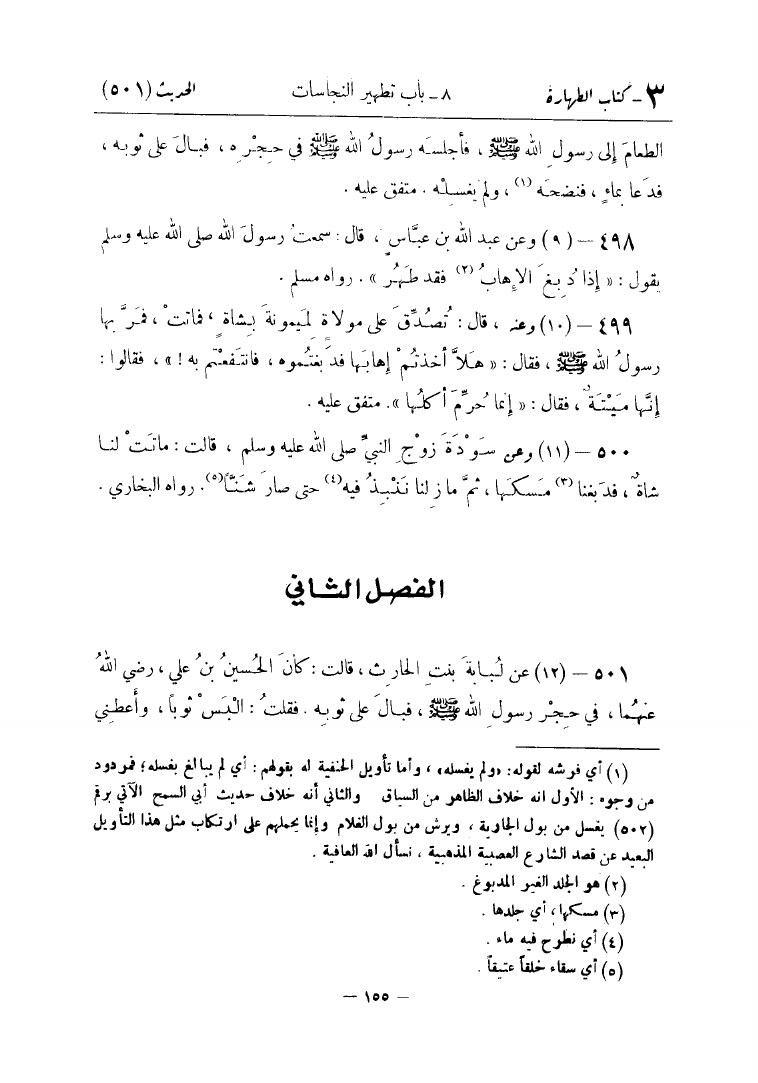 ٣ - كتاب الطهارة ٨ - باب تطهير النجاسات الحديث (٥٠١)
الطعامَ إلى رسولِ الله ﷺ ، فأجلسَه رسولُ الله ﷺ في حِجْرِه ، فبالَ على ثوبه ،
فدَعا بماءٍ ، فنضحَه (١) ، ولم يَغسِلْه . متفق عليه .
٤٩٨ – (٩) وعن عبد الله بن عبَّاسٍ ، قال : سمعتُ رسولَ الله صلى الله عليه وسلم
يقول : « إذا دُبِغَ الإِهابُ (٢) فقد طَهُرَ » . رواه مسلم .
٤٩٩ – (١٠) وعنه ، قال : تُصُدِّقَ على مولاةٍ لميمونةَ بشاةٍ ، فماتتْ ، فمَرَّ بها
رسولُ الله ﷺ ، فقال : « هَلاَّ أخذتُمْ إهابَها فدَبغتُموه ، فانتَفعتُم به ! » ، فقالوا :
إنَّها مَيْتَةٌ ، فقال : « إنما حُرِّمَ أكلُها ». متفق عليه .
٥٠٠ – (١١) وعن سَوْدَةَ زوْجِ النبيِّ صلى الله عليه وسلم ، قالت : ماتَتْ لنا
شاةٌ ، فدَبغنا (٣) مَسكَها ، ثمَّ ما زِلنا نَنْبِذُ فيه(٤) حتى صارَ شَنّاً(٥). رواه البخاري .
الفصل الثاني
٥٠١ – (١٢) عن لُبابةَ بنتِ الحارِث ، قالت : كانَ الحُسينُ بنُ علي ، رضي اللهُ
عنهُما ، في حِجْر رسولِ الله ﷺ ، فبالَ على ثوبِه . فقلتُ : الْبَسْ ثوباً ، وأَعطِني
(١) أي فرشه لقوله : «ولم يغسله» ، وأما تأويل الحنفية له بقولهم : أي لم يبالغ بغسله ؛ فمردود
من وجوه : الأول انه خلاف الظاهر من السياق والثاني أنه خلاف حديث أبي السمح الآتي برقم
(٥٠٢) يغسل من بول الجارية ، ويرش من بول الغلام وإنما يحملهم على ارتكاب مثل هذا التأويل
البعيد عن قصد الشارع العصبية المذهبية ، نسأل الله العافية .
(٢) هو الجلد الغير المدبوغ .
(٣) مسكها ، أي جلدها .
(٤) أي نطرح فيه ماء .
(٥) أي سقاء خلقاً عتيقاً .
— ١٥٥ —